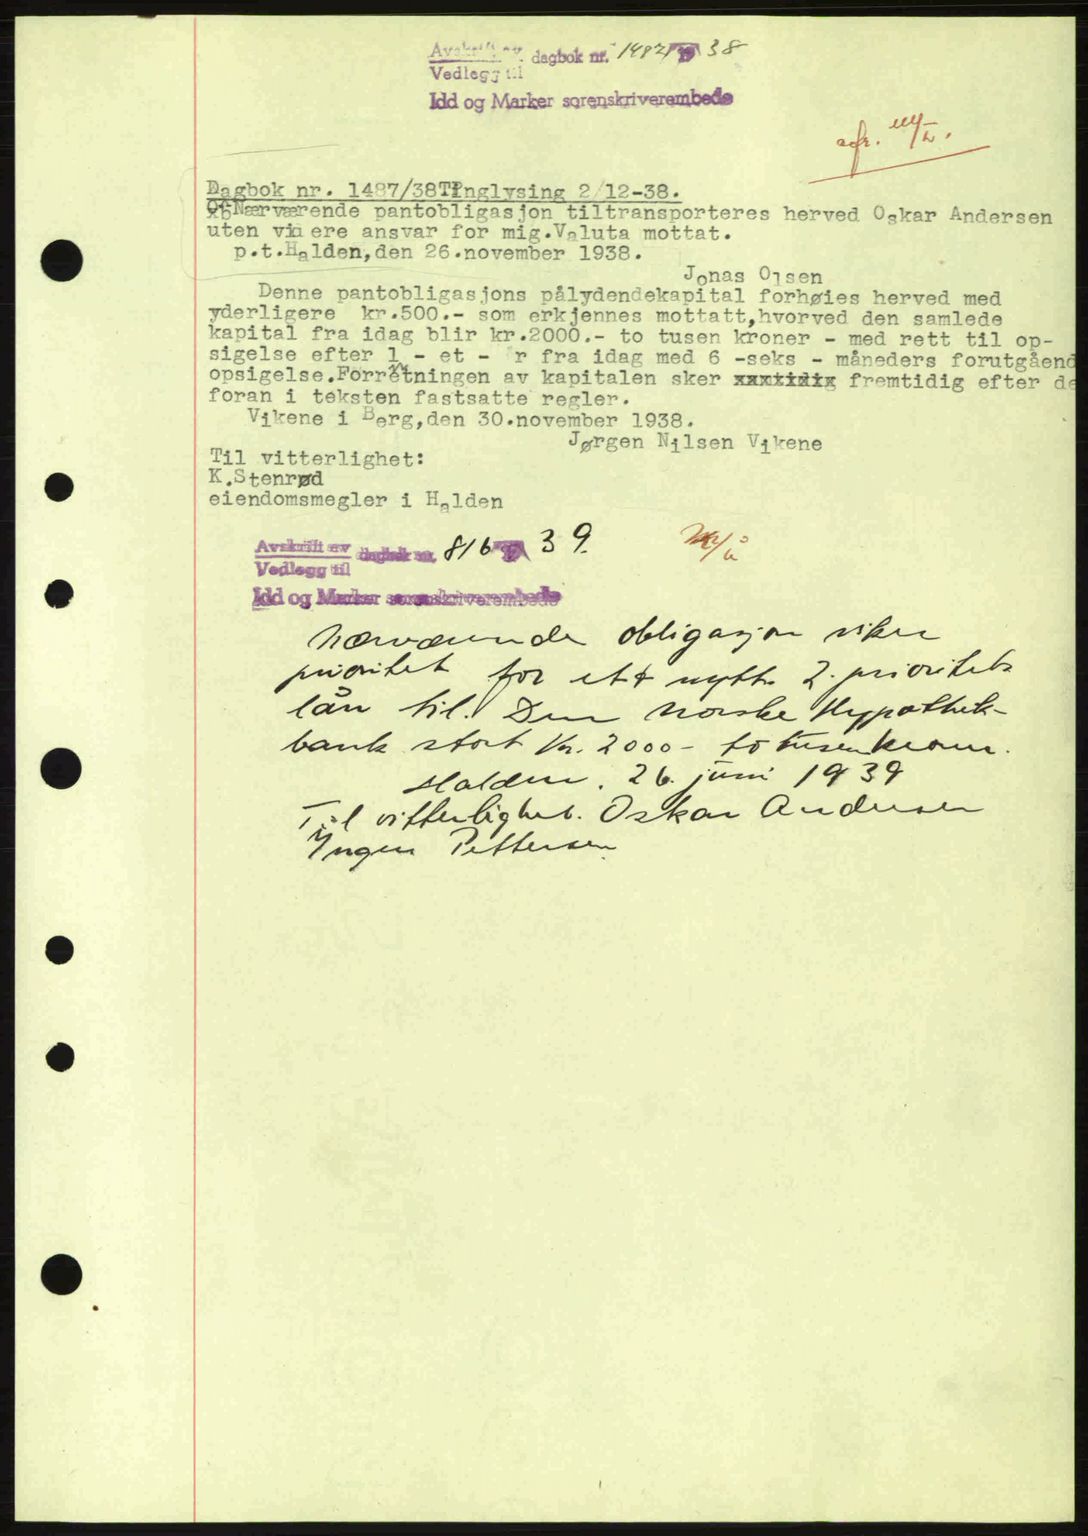 Avskrift av
Vedlegg til
dagbok nr. 1487 19 38
Idd og Marker sorenskriverembede
Dagbok nr. 1487/38Tinglysing 2/12-38.
Nærværende pantobligasjon tiltransporteres herved Oskar Andersen
uten videre ansvar for mig.Valuta mottat.
p.t.Halden,den 26.november 1938.
Jonas Olsen
Denne pantobligasjons pålydendekapital forhøies herved med
yderligere kr.500.- som erkjennes mottatt,hvorved den samlede
kapital fra idag blir kr.2000.- to tusen kroner - med rett til op-
sigelse efter 1 - et - r fra idag med 6 -seks - måneders forutgående
opsigelse.Forretningen av kapitalen sker fremtidig efter de
foran i teksten fastsatte regler.
Vikene i Berg,den 30.november 1938.
Jørgen Nilsen Vikene
Til vitterlighet:
K.Stenrød
eiendomsmegler i Halden
Avskrift av
Vedlegg til
dagbok nr. 816 19 39.
Idd og Marker sorenskriverembede
Nærværende obligasjon viker
prioritet for ett nytt 2. prioritets
lån til. Den Norske Hypothek-
bank stort kr. 2000 - to tusen kroner.
Halden. 26. juni 1939
Til vitterlighet. Oskar Andersen
Yngen Pettersen